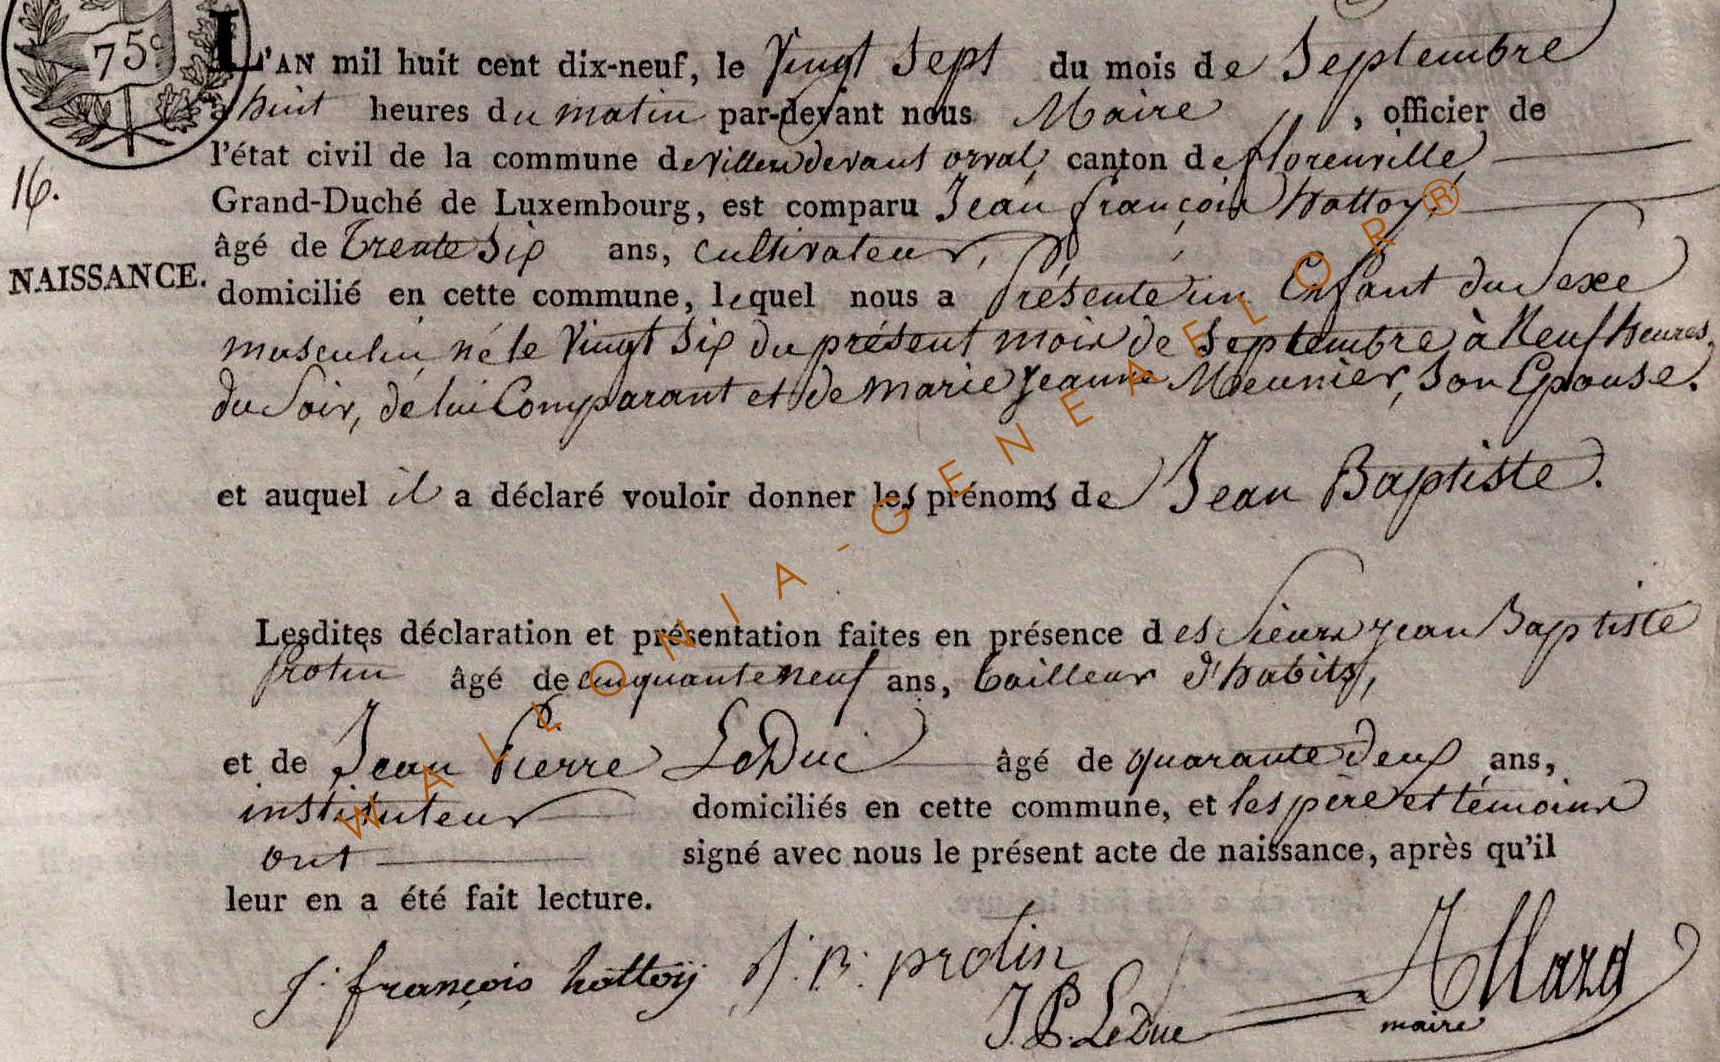 75c
L'AN mil huit cent dix-neuf, le Vingt Sept du mois de Septembre
à huit heures du matin par-devant nous Maire, officier de
l'état civil de la commune de villers devant orval, canton de florenville,
16.
Grand-Duché de Luxembourg, est comparu Jean françois hottoy,
âgé de Trente Six ans, cultivateur,
NAISSANCE.
domicilié en cette commune, lequel nous a présenté un Enfant du Sexe
masculin, né le Vingt Six du présent mois de Septembre à Neuf heures
du Soir, de lui Comparant et de marie Jeanne Meunier, Son Epouse.
et auquel il a déclaré vouloir donner les prénoms de Jean Baptiste.
Lesdites déclaration et présentation faites en présence des Sieurs jean Baptiste
protin âgé de cinquante neuf ans, tailleur d'habits,
et de Jean Pierre LeDuc âgé de quarante deux ans,
instituteur domiciliés en cette commune, et les père et témoins
ont signé avec nous le présent acte de naissance, après qu'il
leur en a été fait lecture.
j: françois hottoÿ J: B: protin
J. P. LeDuc Allard
maire
WALLONIA-GENEAELOR®